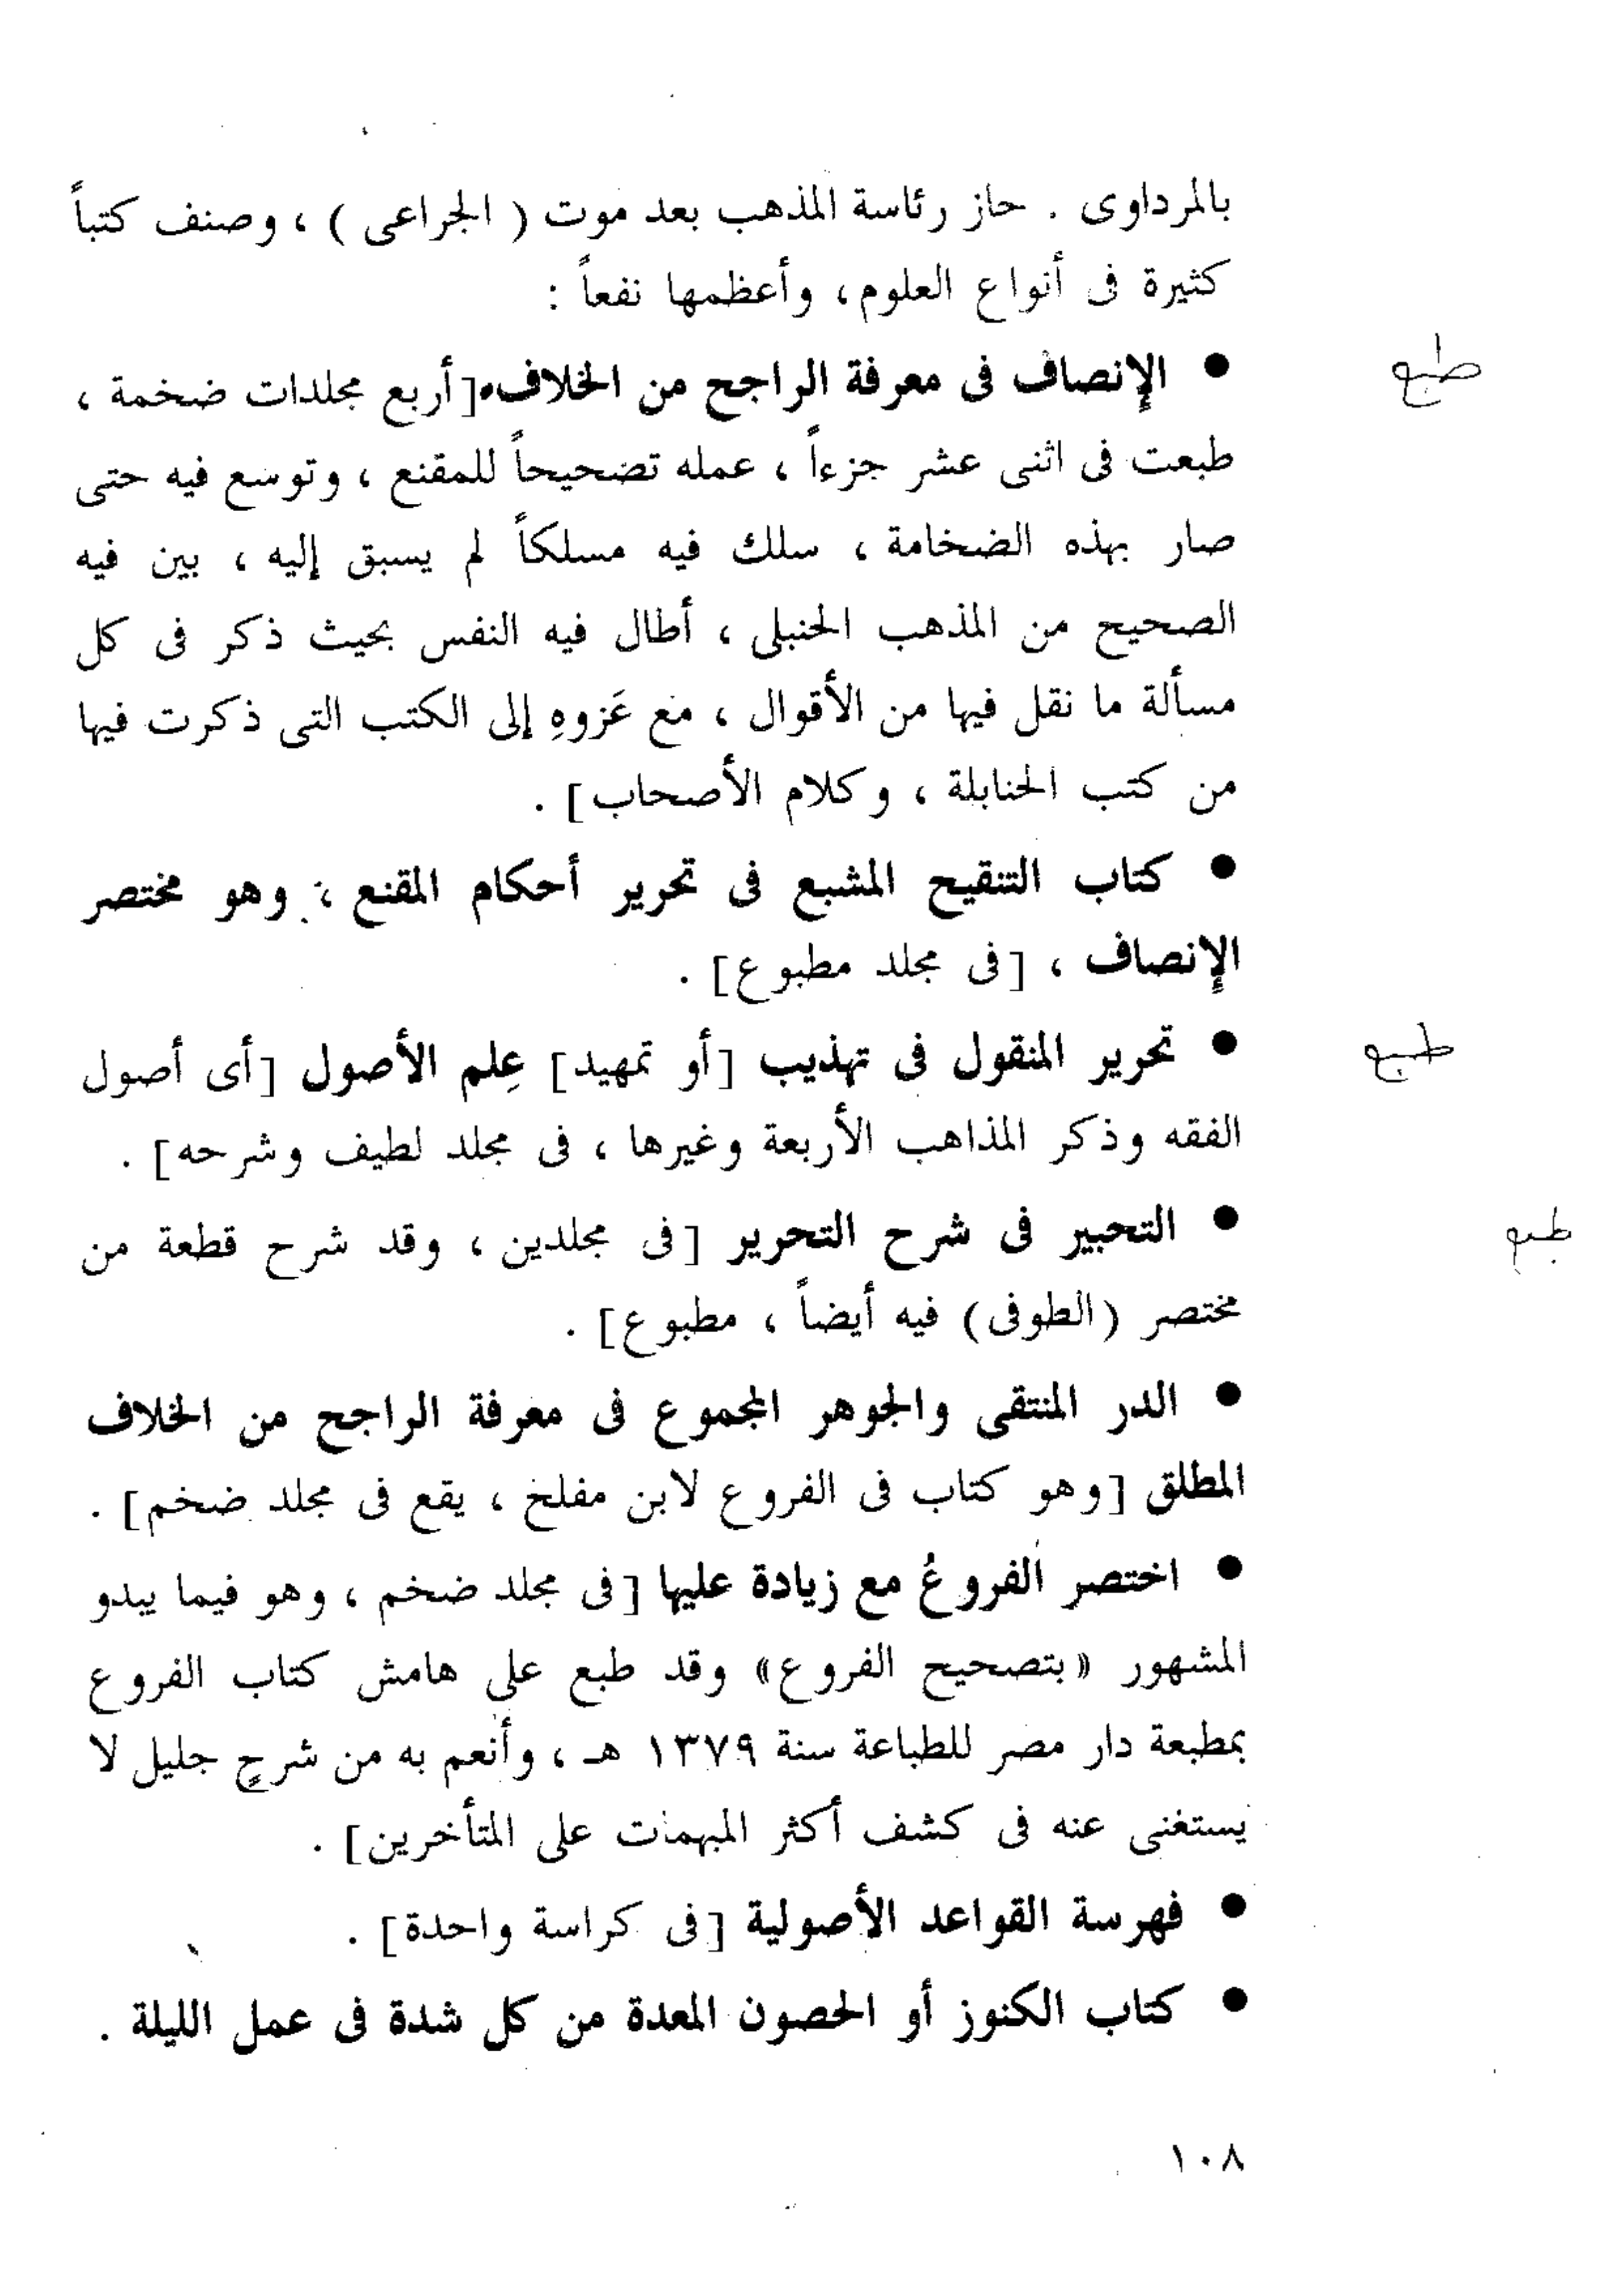 بالمرداوى . حاز رئاسة المذهب بعد موت ( الجراعى ) ، وصنف كتباً
كثيرة فى أنواع العلوم، وأعظمها نفعاً :
● الإنصاف فى معرفة الراجح من الخلاف، [أربع مجلدات ضخمة ،
طبع
طبعت فى اثنى عشر جزءاً ، عمله تصحيحاً للمقنع ، وتوسع فيه حتى
صار بهذه الضخامة ، سلك فيه مسلكاً لم يسبق إليه ، بين فيه
الصحيح من المذهب الحنبلى ، أطال فيه النفس بحيث ذكر فى كل
مسألة ما نقل فيها من الأقوال ، مع عَزوهِ إلى الكتب التى ذكرت فيها
من كتب الحنابلة ، وكلام الأصحاب] .
● كتاب التنقيح المشبع فى تحرير أحكام المقنع ، وهو مختصر
الإنصاف ، [فى مجلد مطبوع] .
● تحرير المنقول فى تهذيب [أو تمهيد] عِلم الأصول [أى أصول
طبع
الفقه وذكر المذاهب الأربعة وغيرها ، فى مجلد لطيف وشرحه] .
● التحبير فى شرح التحرير [فى مجلدين ، وقد شرح قطعة من
طبع
مختصر (الطوفى) فيه أيضاً ، مطبوع] .
● الدر المنتقى والجوهر المجموع فى معرفة الراجح من الخلاف
المطلق [وهو كتاب فى الفروع لابن مفلح ، يقع فى مجلد ضخم] .
● اختصر الفروعُ مع زيادة عليها [فى مجلد ضخم ، وهو فيما يبدو
المشهور «بتصحيح الفروع» وقد طبع على هامش كتاب الفروع
بمطبعة دار مصر للطباعة سنة ١٣٧٩ هـ ، وأنعم به من شرحٍ جليل لا
يستغنى عنه فى كشف أكثر المبهمات على المتأخرين] .
● فهرسة القواعد الأصولية [فى كراسة واحدة] .
● كتاب الكنوز أو الحصون المعدة من كل شدة فى عمل الليلة .
١٠٨